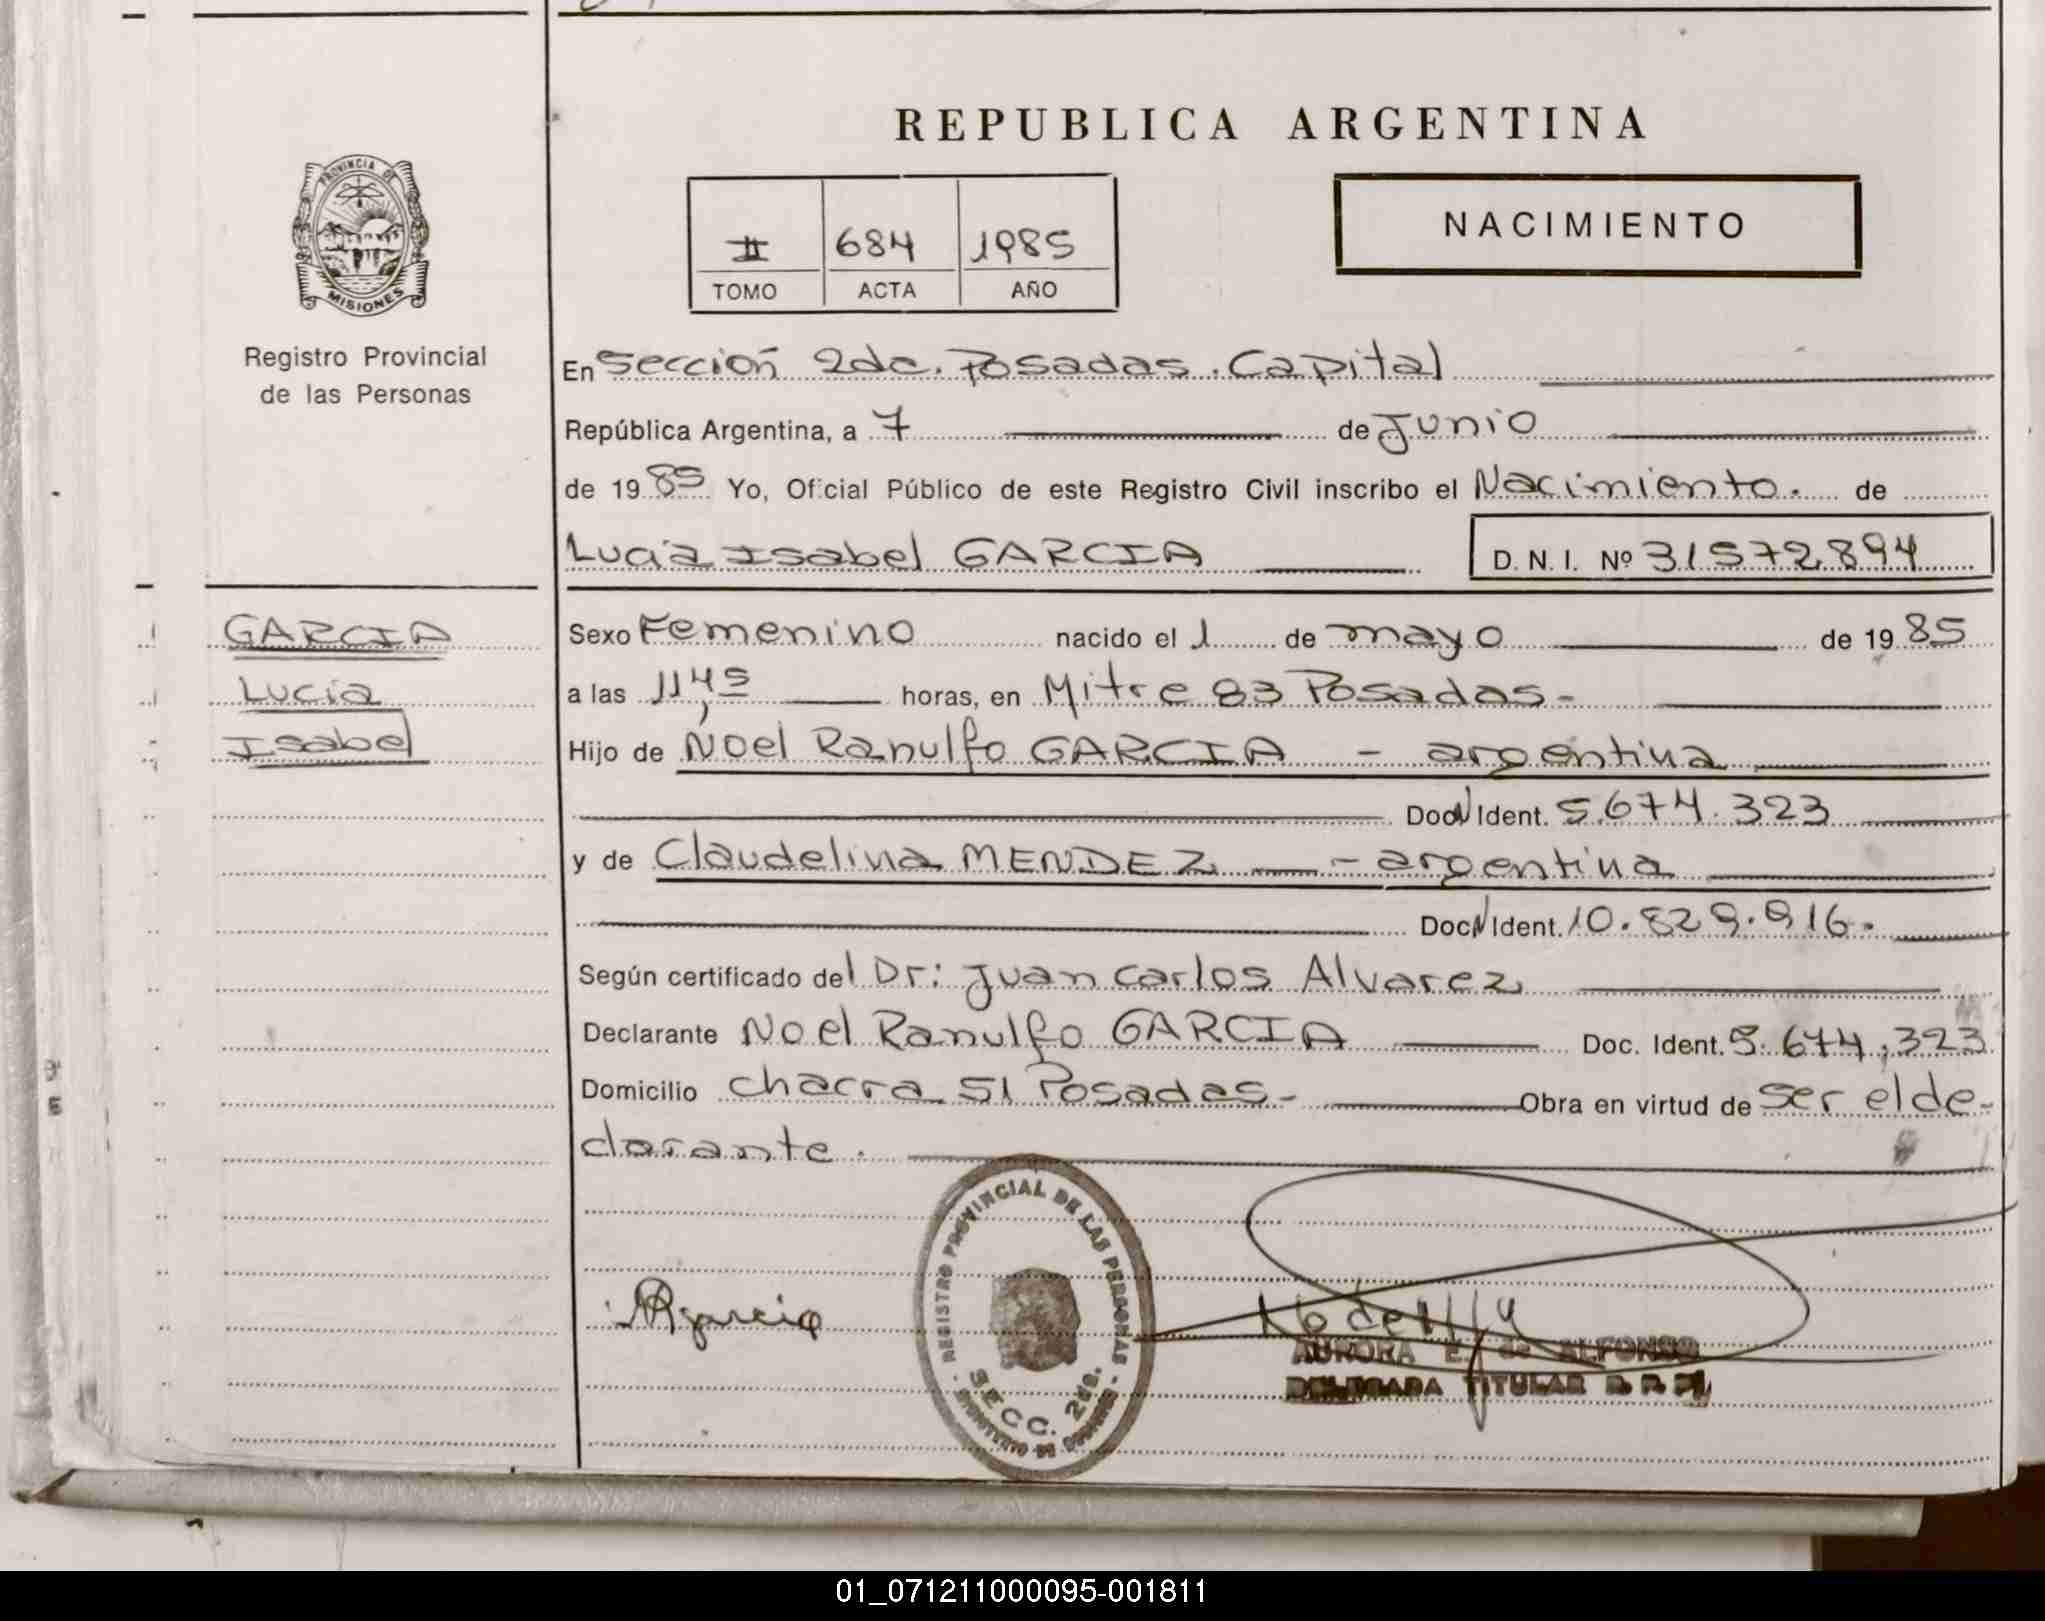 REPUBLICA ARGENTINA
PROVINCIA DE
MISIONES
Registro Provincial
de las Personas
II 684 1985
TOMO ACTA AÑO
NACIMIENTO
En Sección 2da. Posadas. Capital
República Argentina, a 7 de Junio
de 1985 Yo, Oficial Público de este Registro Civil inscribo el Nacimiento. de
Lucía Isabel GARCIA D. N. I. Nº 31572894
GARCIA
Lucía
Isabel
Sexo Femenino nacido el 1 de mayo de 1985
a las 11,45 horas, en Mitre 83 Posadas-
Hijo de Noel Ranulfo GARCIA - argentina
Doc N Ident. 5.674.323
y de Claudelina MENDEZ - argentina
Doc N Ident. 10.829.916.
Según certificado del Dr: Juan Carlos Alvarez
Declarante Noel Ranulfo GARCIA Doc. Ident. 5.674,323
Domicilio chacra 51 Posadas- Obra en virtud de ser el de-
clarante.
REGISTRO PROVINCIAL DE LAS PERSONAS
SECC. 2da.
NRgarcia
AURORA E. de ALFONSO
DELEGADA TITULAR R. P. P.
01_071211000095-001811